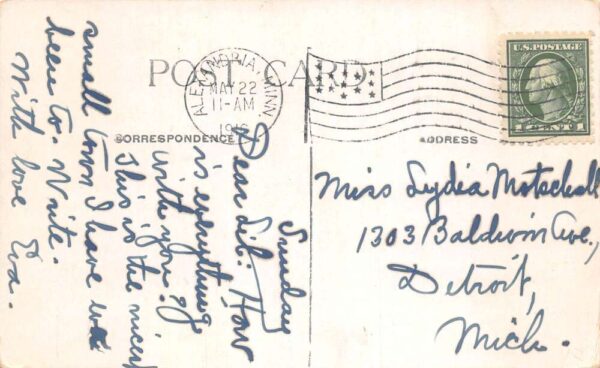 POST CARD
ALEXANDRIA, MINN.
MAY 22
11-AM
U.S. POSTAGE
1 CENT 1
CORRESPONDENCE
ADDRESS
Sunday
Dear Lil: How
is everything
with you?
This is the nicest
small town I have
been to. Write.
With love Eva.
Miss Lydia Motschall
1303 Baldwin Ave,
Detroit,
Mich.